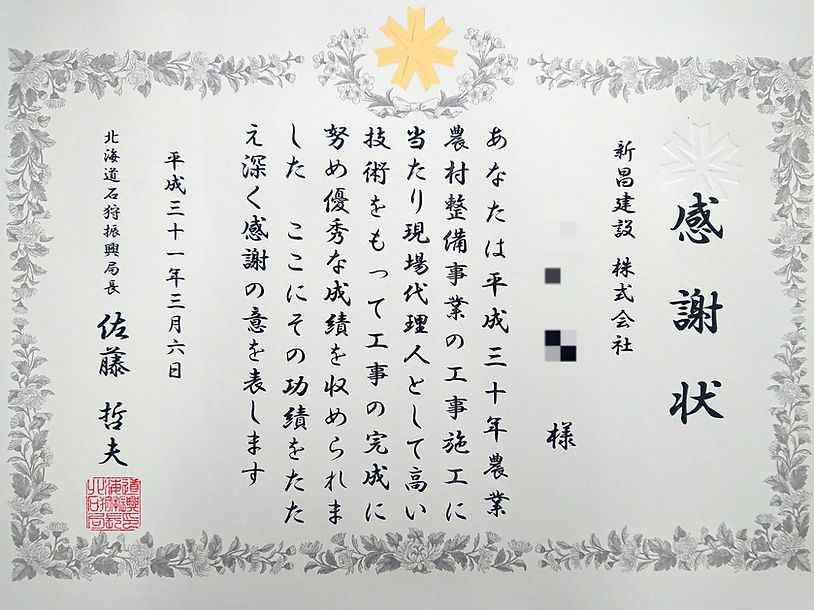 感謝状
新昌建設 株式会社
様
あなたは平成三十年農業
農村整備事業の工事施工に
当たり現場代理人として高い
技術をもって工事の完成に
努め優秀な成績を収められま
した ここにその功績をたた
え深く感謝の意を表します
平成三十一年三月六日
北海道石狩振興局長 佐藤 哲夫